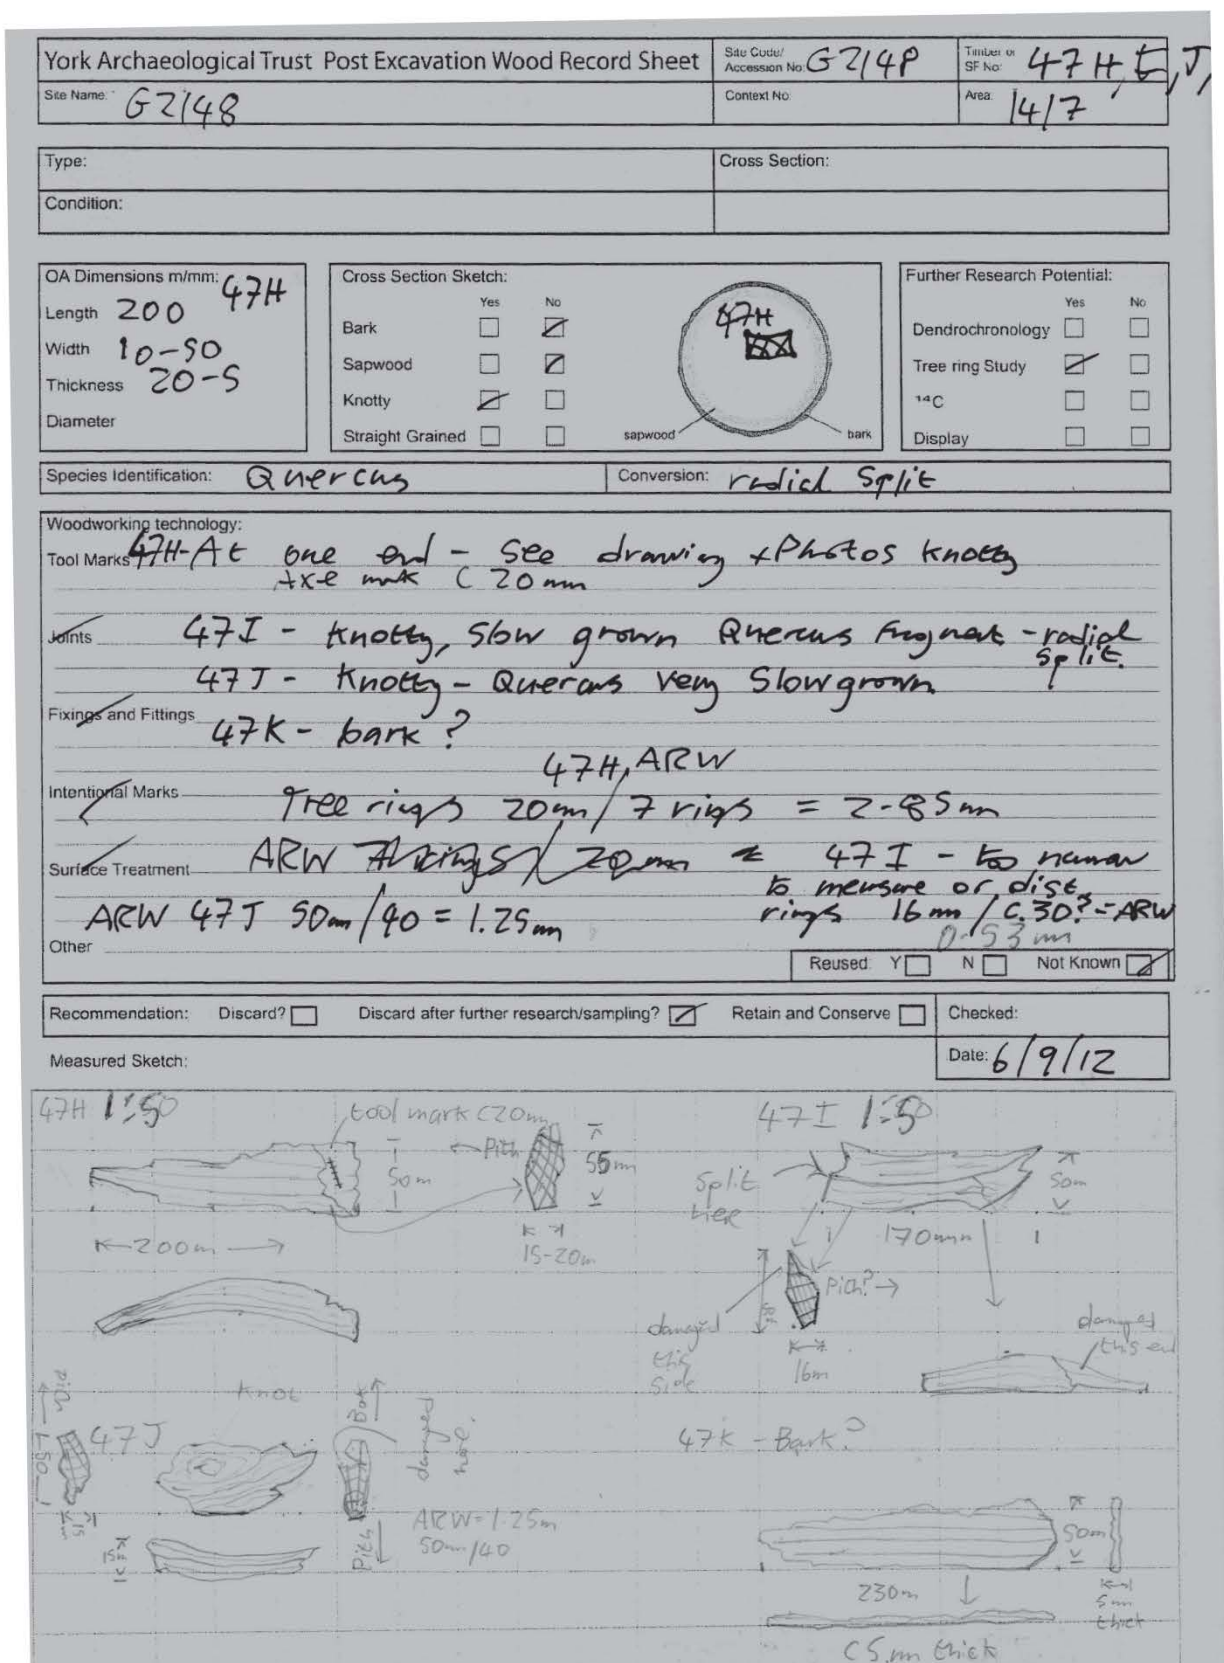 York Archaeological Trust Post Excavation Wood Record Sheet
Site Code/ Accession No: G2148
Timber or SF No: 47H, I, J,
Site Name: G2148
Context No:
Area: 14/7
Type:
Cross Section:
Condition:
OA Dimensions m/mm: 47H
Length 200
Width 10-50
Thickness 20-5
Diameter
Cross Section Sketch:
Yes No
Bark
Sapwood
Knotty
Straight Grained
47H
sapwood
bark
Further Research Potential:
Yes No
Dendrochronology
Tree ring Study
14C
Display
Species Identification: Quercus
Conversion: radial split
Woodworking technology:
Tool Marks 47H-At one end - See drawing + Photos Knotty
Axe mark C 20mm
Joints 47I - Knotty, Slow grown Quercus fragment - radial
split.
47J - Knotty - Quercus very Slow grown
Fixings and Fittings
47K - bark?
47H, ARW
Intentional Marks Tree rings 20mm / 7 rings = 2.85mm
Surface Treatment ARW 7 rings / 20mm 47I - too narrow
to measure or dist.
ARW 47J 50mm/40 = 1.25mm rings 16mm / C.30? = ARW
0.53mm
Other
Reused: Y N Not Known
Recommendation: Discard? Discard after further research/sampling? Retain and Conserve
Checked:
Measured Sketch:
Date: 6/9/12
47H 1:50
tool mark C20mm
Pith
50m
55mm
200m
15-20m
47I 1:50
Split
here
50m
170mm
Pith? →
damaged
this
side
16m
damaged
this end
Knot
pith
47J
50
15m
Bark
Pith
damaged
here.
ARW = 1.25m
50mm/40
47K - Bark?
50m
230m
5mm
thick
C5mm thick